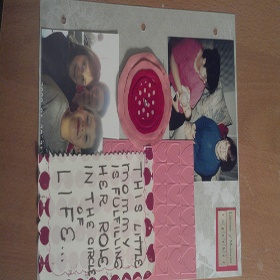 THIS LITTLE
MOMMY
IS FULFILLING
HER ROLE
IN THE CIRCLE
OF
LIFE...